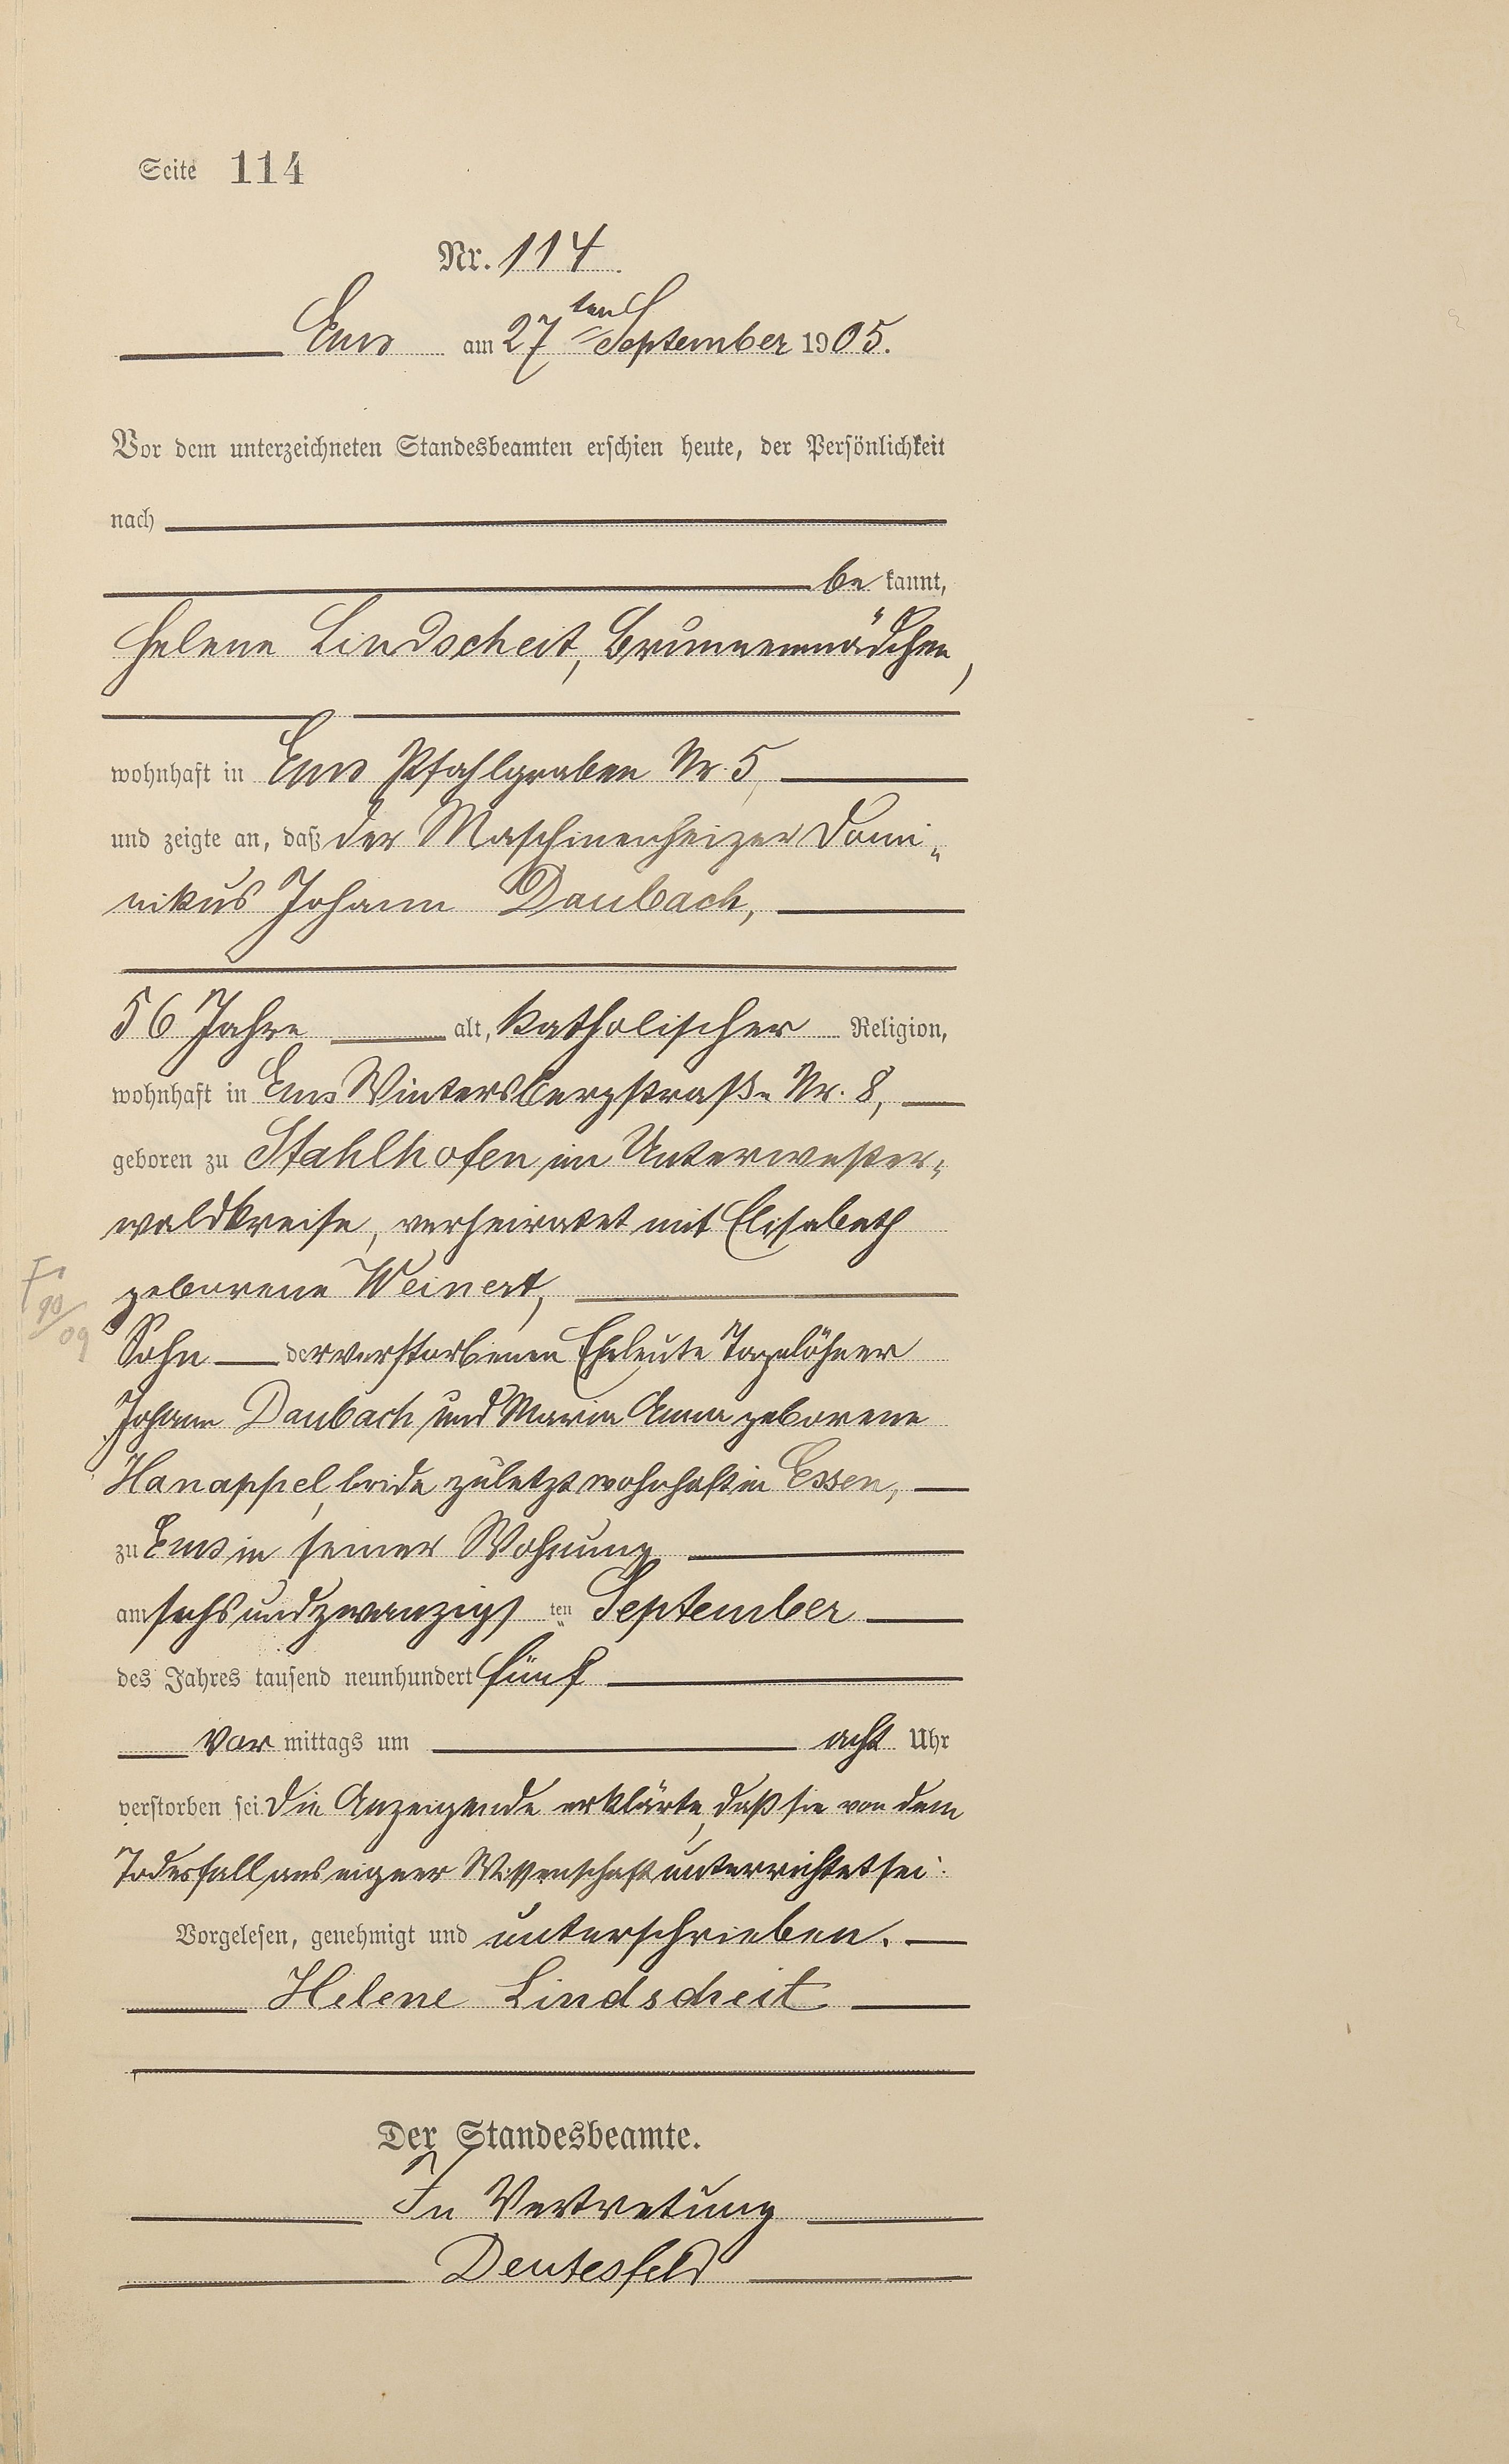 Seite 114
Nr. 114.
Ems am 27ten September 1905.
Vor dem unterzeichneten Standesbeamten erschien heute, der Persönlichkeit
nach
be kannt,
Helene Lindscheit, Brunnenmädchen,
wohnhaft in Ems Pfahlgraben Nr. 5,
und zeigte an, daß der Maschinenheizer Domi-
nikus Johann Daubach,
56 Jahre alt, katholischer Religion,
wohnhaft in Ems Wintersbergstraße Nr. 8,
geboren zu Stahlhofen im Unterwester-
waldkreise, verheiratet mit Elisabeth
geborene Weinert,
Sohn der verstorbenen Eheleute Tagelöhner
Johann Daubach und Maria Anna geborene
Hanappel, beide zuletzt wohnhaft in Essen,
zu Ems in seiner Wohnung
am sechsundzwanzigsten September
des Jahres tausend neunhundert fünf
Vor mittags um acht Uhr
verstorben sei. Die Anzeigende erklärte, daß sie von dem
Todesfall aus eigner Wissenschaft unterrichtet sei.
Vorgelesen, genehmigt und unterschrieben.
Helene Lindscheit
Der Standesbeamte.
In Vertretung
Deutesfeld